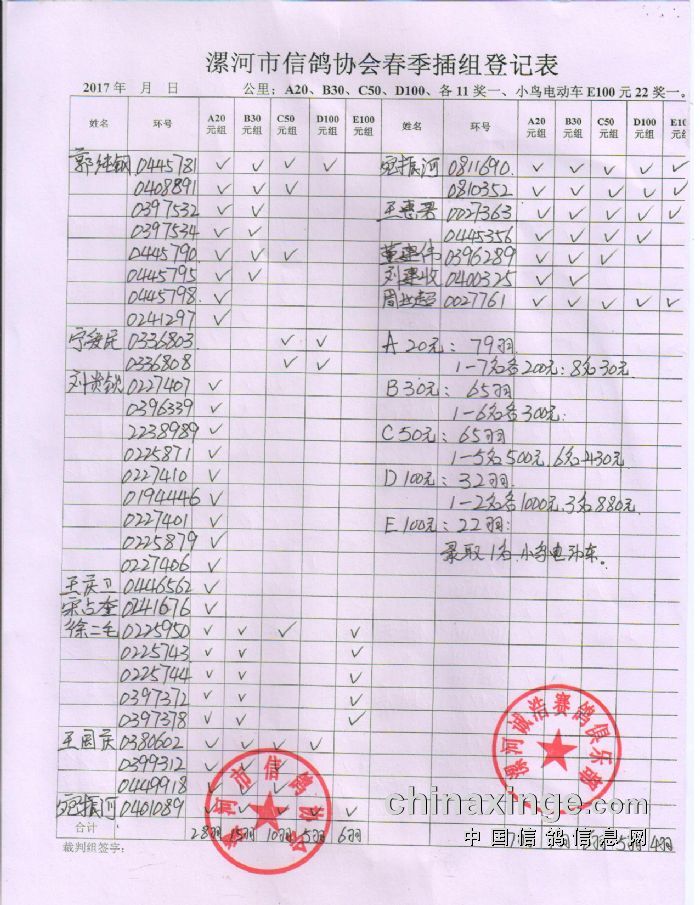 漯河市信鸽协会春季插组登记表
2017 年 月 日 公里；A20、B30、C50、D100、各 11 奖一、小鸟电动车 E100 元 22 奖一。
姓名 环号 A20元组 B30元组 C50元组 D100元组 E100元组 姓名 环号 A20元组 B30元组 C50元组 D100元组 E10元组
郭纯钢 0445781 ✓ ✓ ✓ ✓ 振河 0811690 ✓ ✓ ✓ ✓ ✓
0408891 ✓ ✓ ✓ 0810352 ✓ ✓ ✓ ✓ ✓
0397532 ✓ ✓ 王惠署 0027363 ✓ ✓ ✓ ✓ ✓
0397534 ✓ ✓ 0445356 ✓ ✓ ✓ ✓
0445790 ✓ ✓ ✓ 董建伟 0396289 ✓ ✓ ✓
0445795 ✓ ✓ 刘建收 0400325 ✓ ✓
0445798 ✓ 周 0027761 ✓ ✓ ✓ ✓ ✓
0241297 ✓
民 0336803 ✓ ✓ A 20元：79羽
0336808 ✓ ✓ 1-7名各200元；8名30元
刘 0227407 ✓ B 30元：65羽
0396339 ✓ 1-6名各300元
2238989 ✓ C 50元：65羽
0225871 ✓ 1-5名500元 6名430元
0227410 ✓ D 100元：32羽
0194446 ✓ 1-2名各1000元、3名880元
0227401 ✓ E 100元：22羽：
0225879 ✓ 录取1名 小鸟电动车。
0227406 ✓
王庆卫 0446562 ✓
宋占奎 0241676 ✓
徐二毛 0225950 ✓ ✓ ✓ ✓
0225743 ✓ ✓ ✓
0225744 ✓ ✓ ✓
0397372 ✓ ✓ ✓
0397378 ✓ ✓ ✓
王国庆 0380602 ✓ ✓ ✓ ✓
0399312 ✓ ✓ ✓
0449918 ✓ ✓ ✓
振河 0401089 ✓ ✓ ✓ ✓ ✓
合计 28羽 15羽 10羽 5羽 6羽 5羽 4羽
裁判组签字：
漯河市信鸽协会
漯河诚浩赛鸽俱乐部
chinaxinge.com
中国信鸽信息网